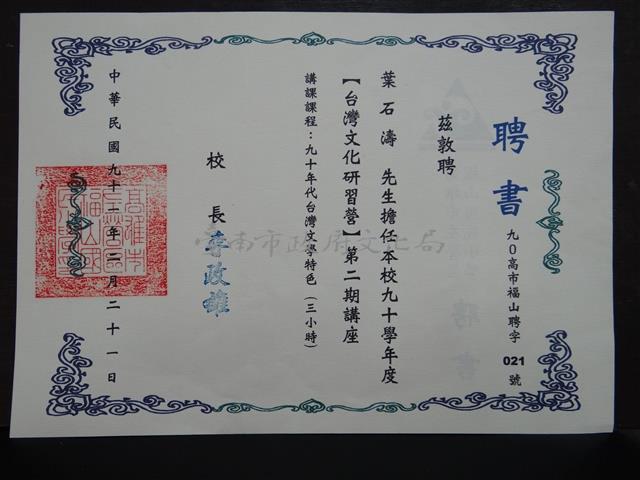 聘書
九０高市福山聘字021號
茲敦聘
葉石濤 先生擔任本校九十學年度
【台灣文化研習營】第二期講座
講課課程：九十年代台灣文學特色（三小時）
校長李政雄
中華民國九十一年二月二十一日
台南市政府文化局